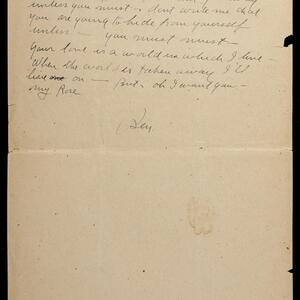 unless you must – don't write me that
you are going to hide from yourself
unless – you must must –
Your love is a world in which I live –
When the world is taken away I'll
live on – But, oh I want you –
my Rose
Ben